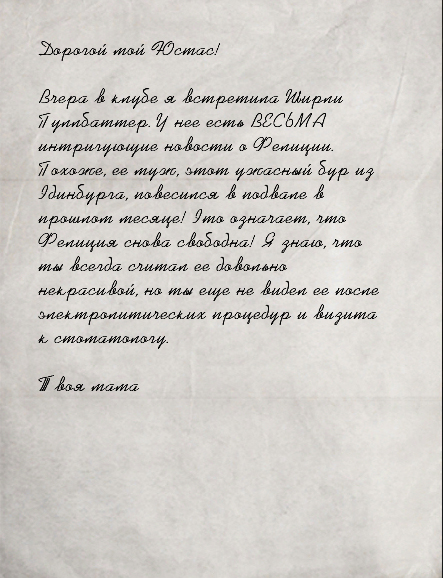 Дорогой мой Юстас!
Вчера в клубе я встретила Ширли
Пуллбаттер. У нее есть ВЕСЬМА
интригующие новости о Фелиции.
Похоже, ее муж, этот ужасный бур из
Эдинбурга, повесился в подвале в
прошлом месяце! Это означает, что
Фелиция снова свободна! Я знаю, что
ты всегда считал ее довольно
некрасивой, но ты еще не видел ее после
электролитических процедур и визита
к стоматологу.
Твоя мама